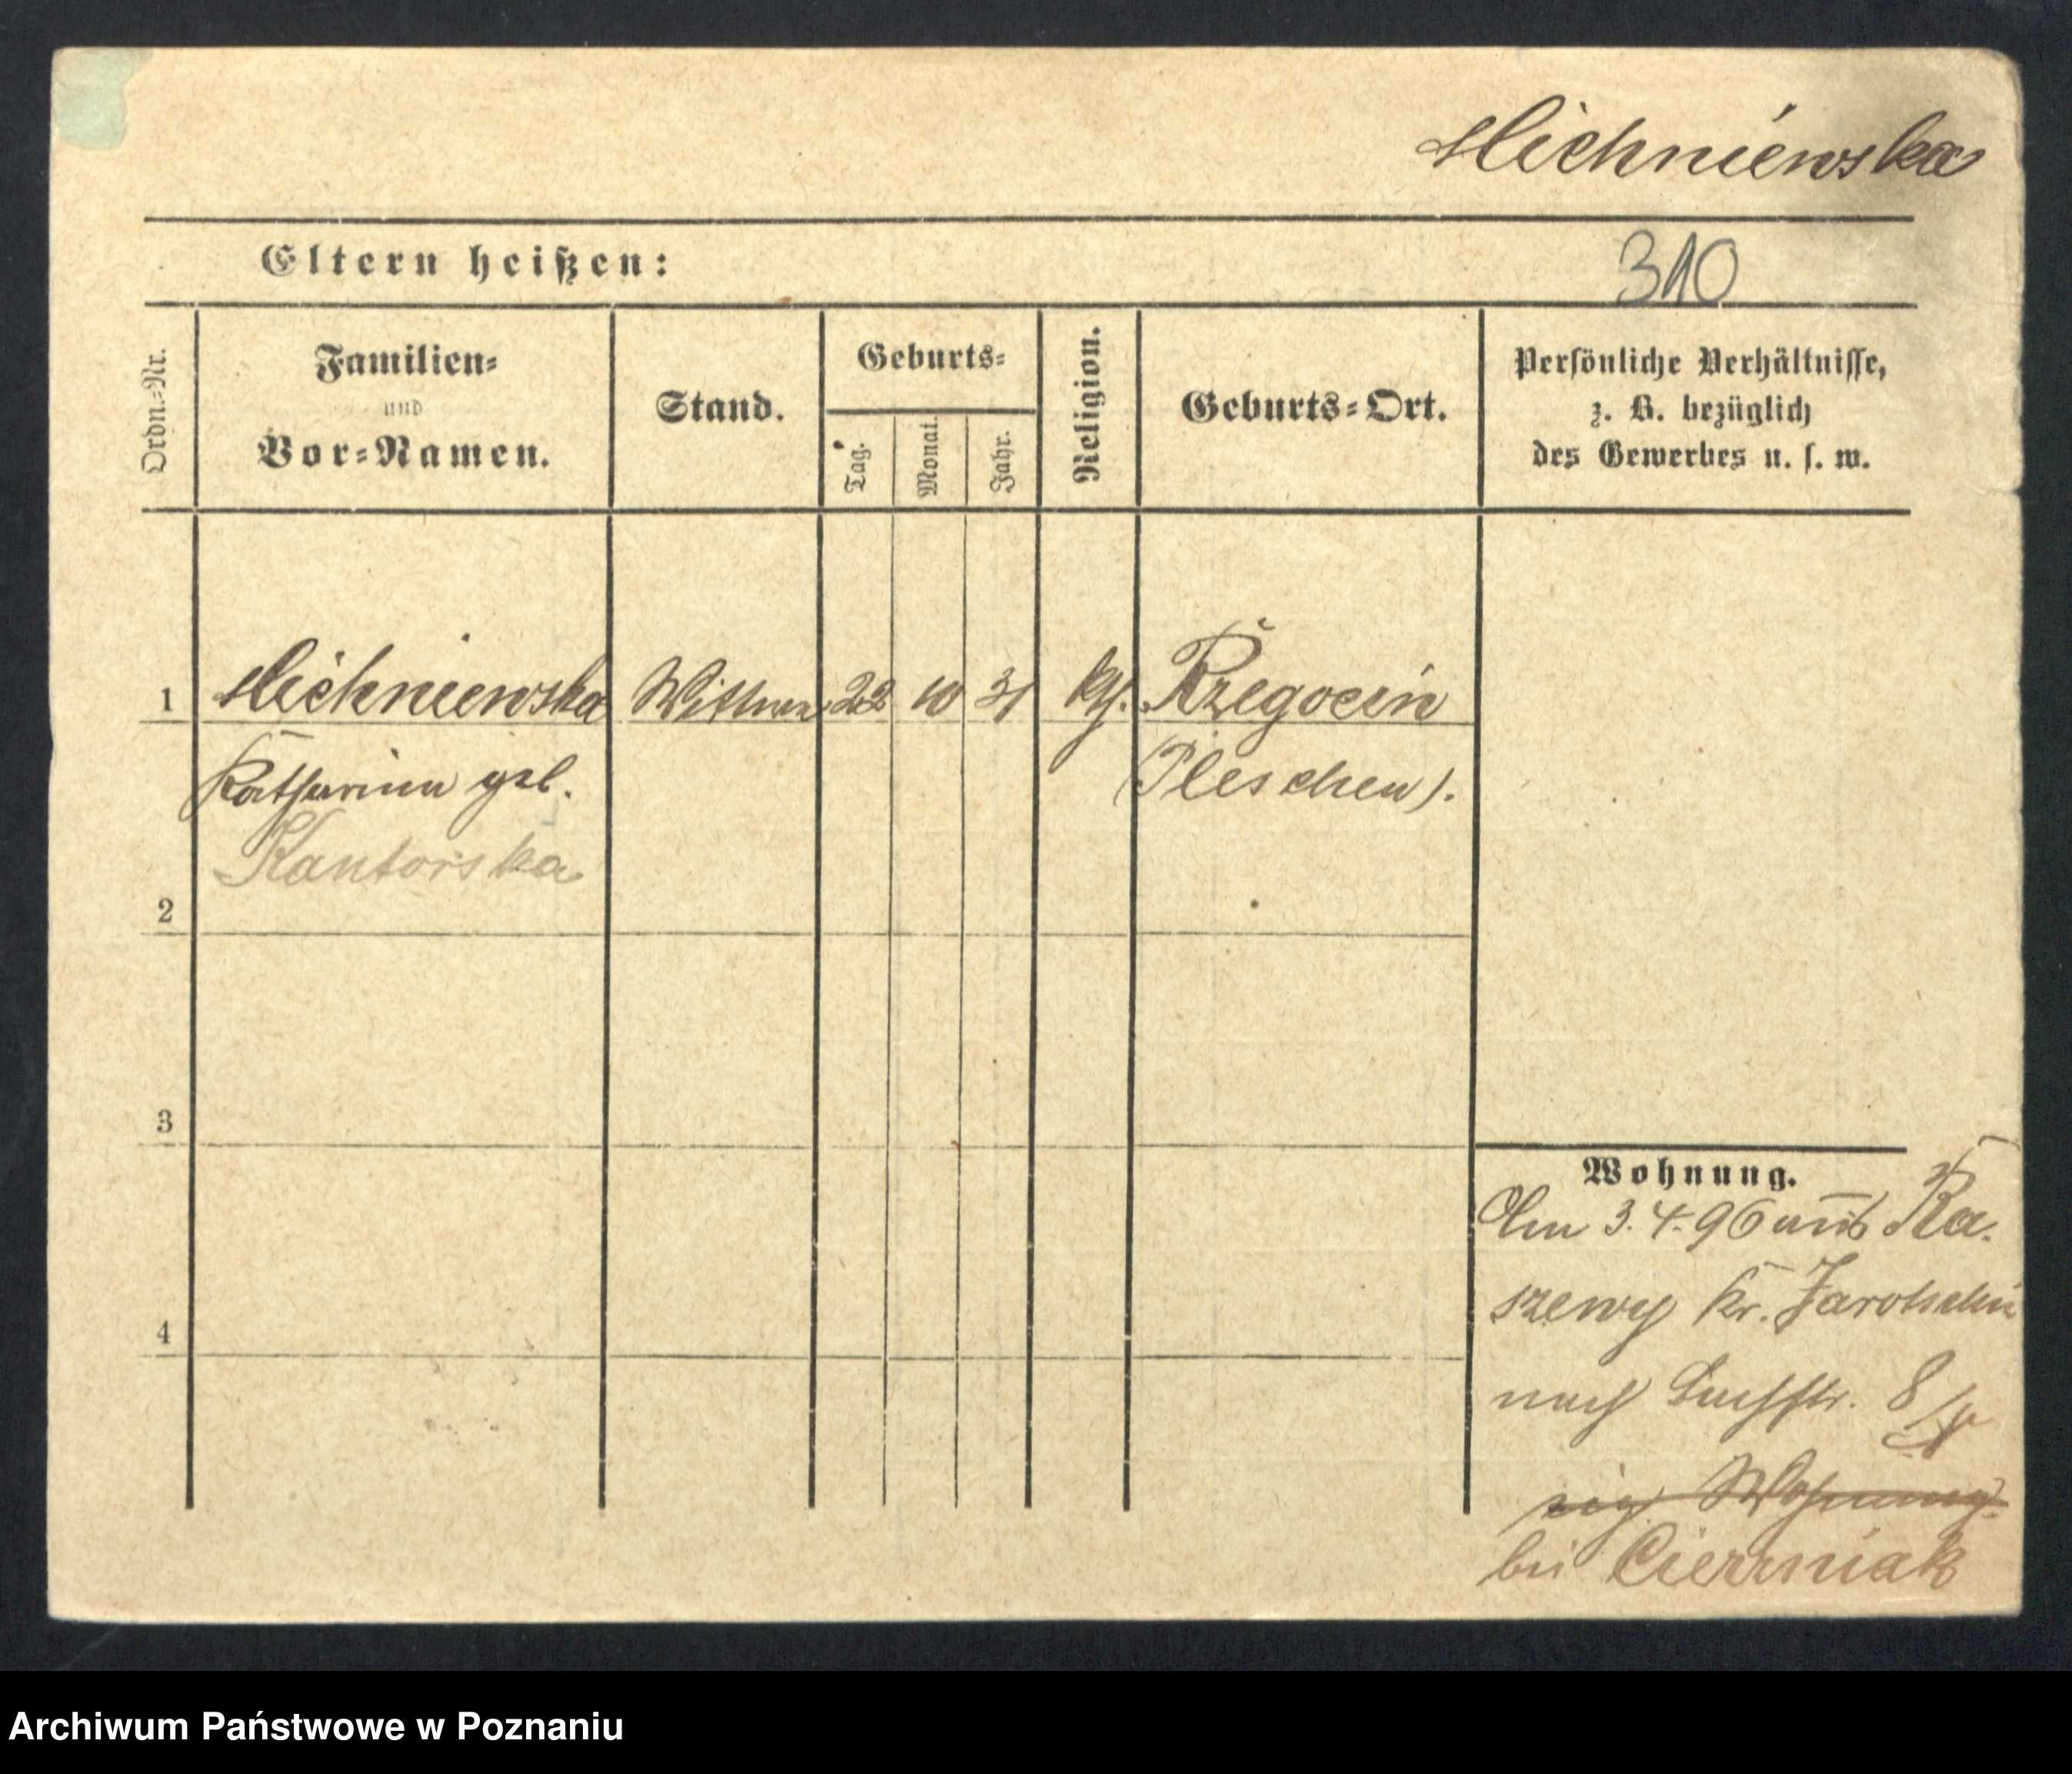 Michniewska
Eltern heißen:
310
Ordn.-Nr.
Familien-
und
Vor-Namen.
Stand.
Geburts-
Tag.
Monat.
Jahr.
Religion.
Geburts-Ort.
Persönliche Verhältnisse,
z. B. bezüglich
des Gewerbes u. s. w.
1 Michniewska Wittwe 22 10 31 kth. Rzegocin
Katharina geb. (Pleschen).
Kantorska
2
3
4
Wohnung.
Am 3.4.96 aus Ra-
szewy Kr. Jarotschin
nach 8/
eig. Wohnung.
bei Cierniak
Archiwum Państwowe w Poznaniu